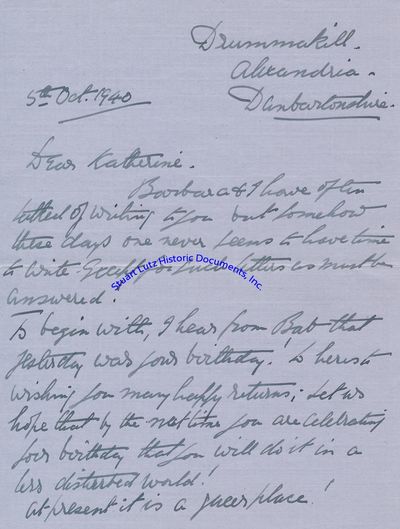 Drummakill.
Alexandria.
Dunbartonshire.
5th Oct. 1940
Dear Katherine.
Barbara & I have often
talked of writing to you but somehow
these days one never seems to have time
to write except for such letters as must be
Stuart Lutz Historic Documents, Inc.
answered.
To begin with, I hear from Bab that
yesterday was your birthday! So heres to
wishing you many happy returns; Let us
hope that by the next time you are celebrating
your birthday that you will do it in a
less disturbed world!
At present it is a queer place!